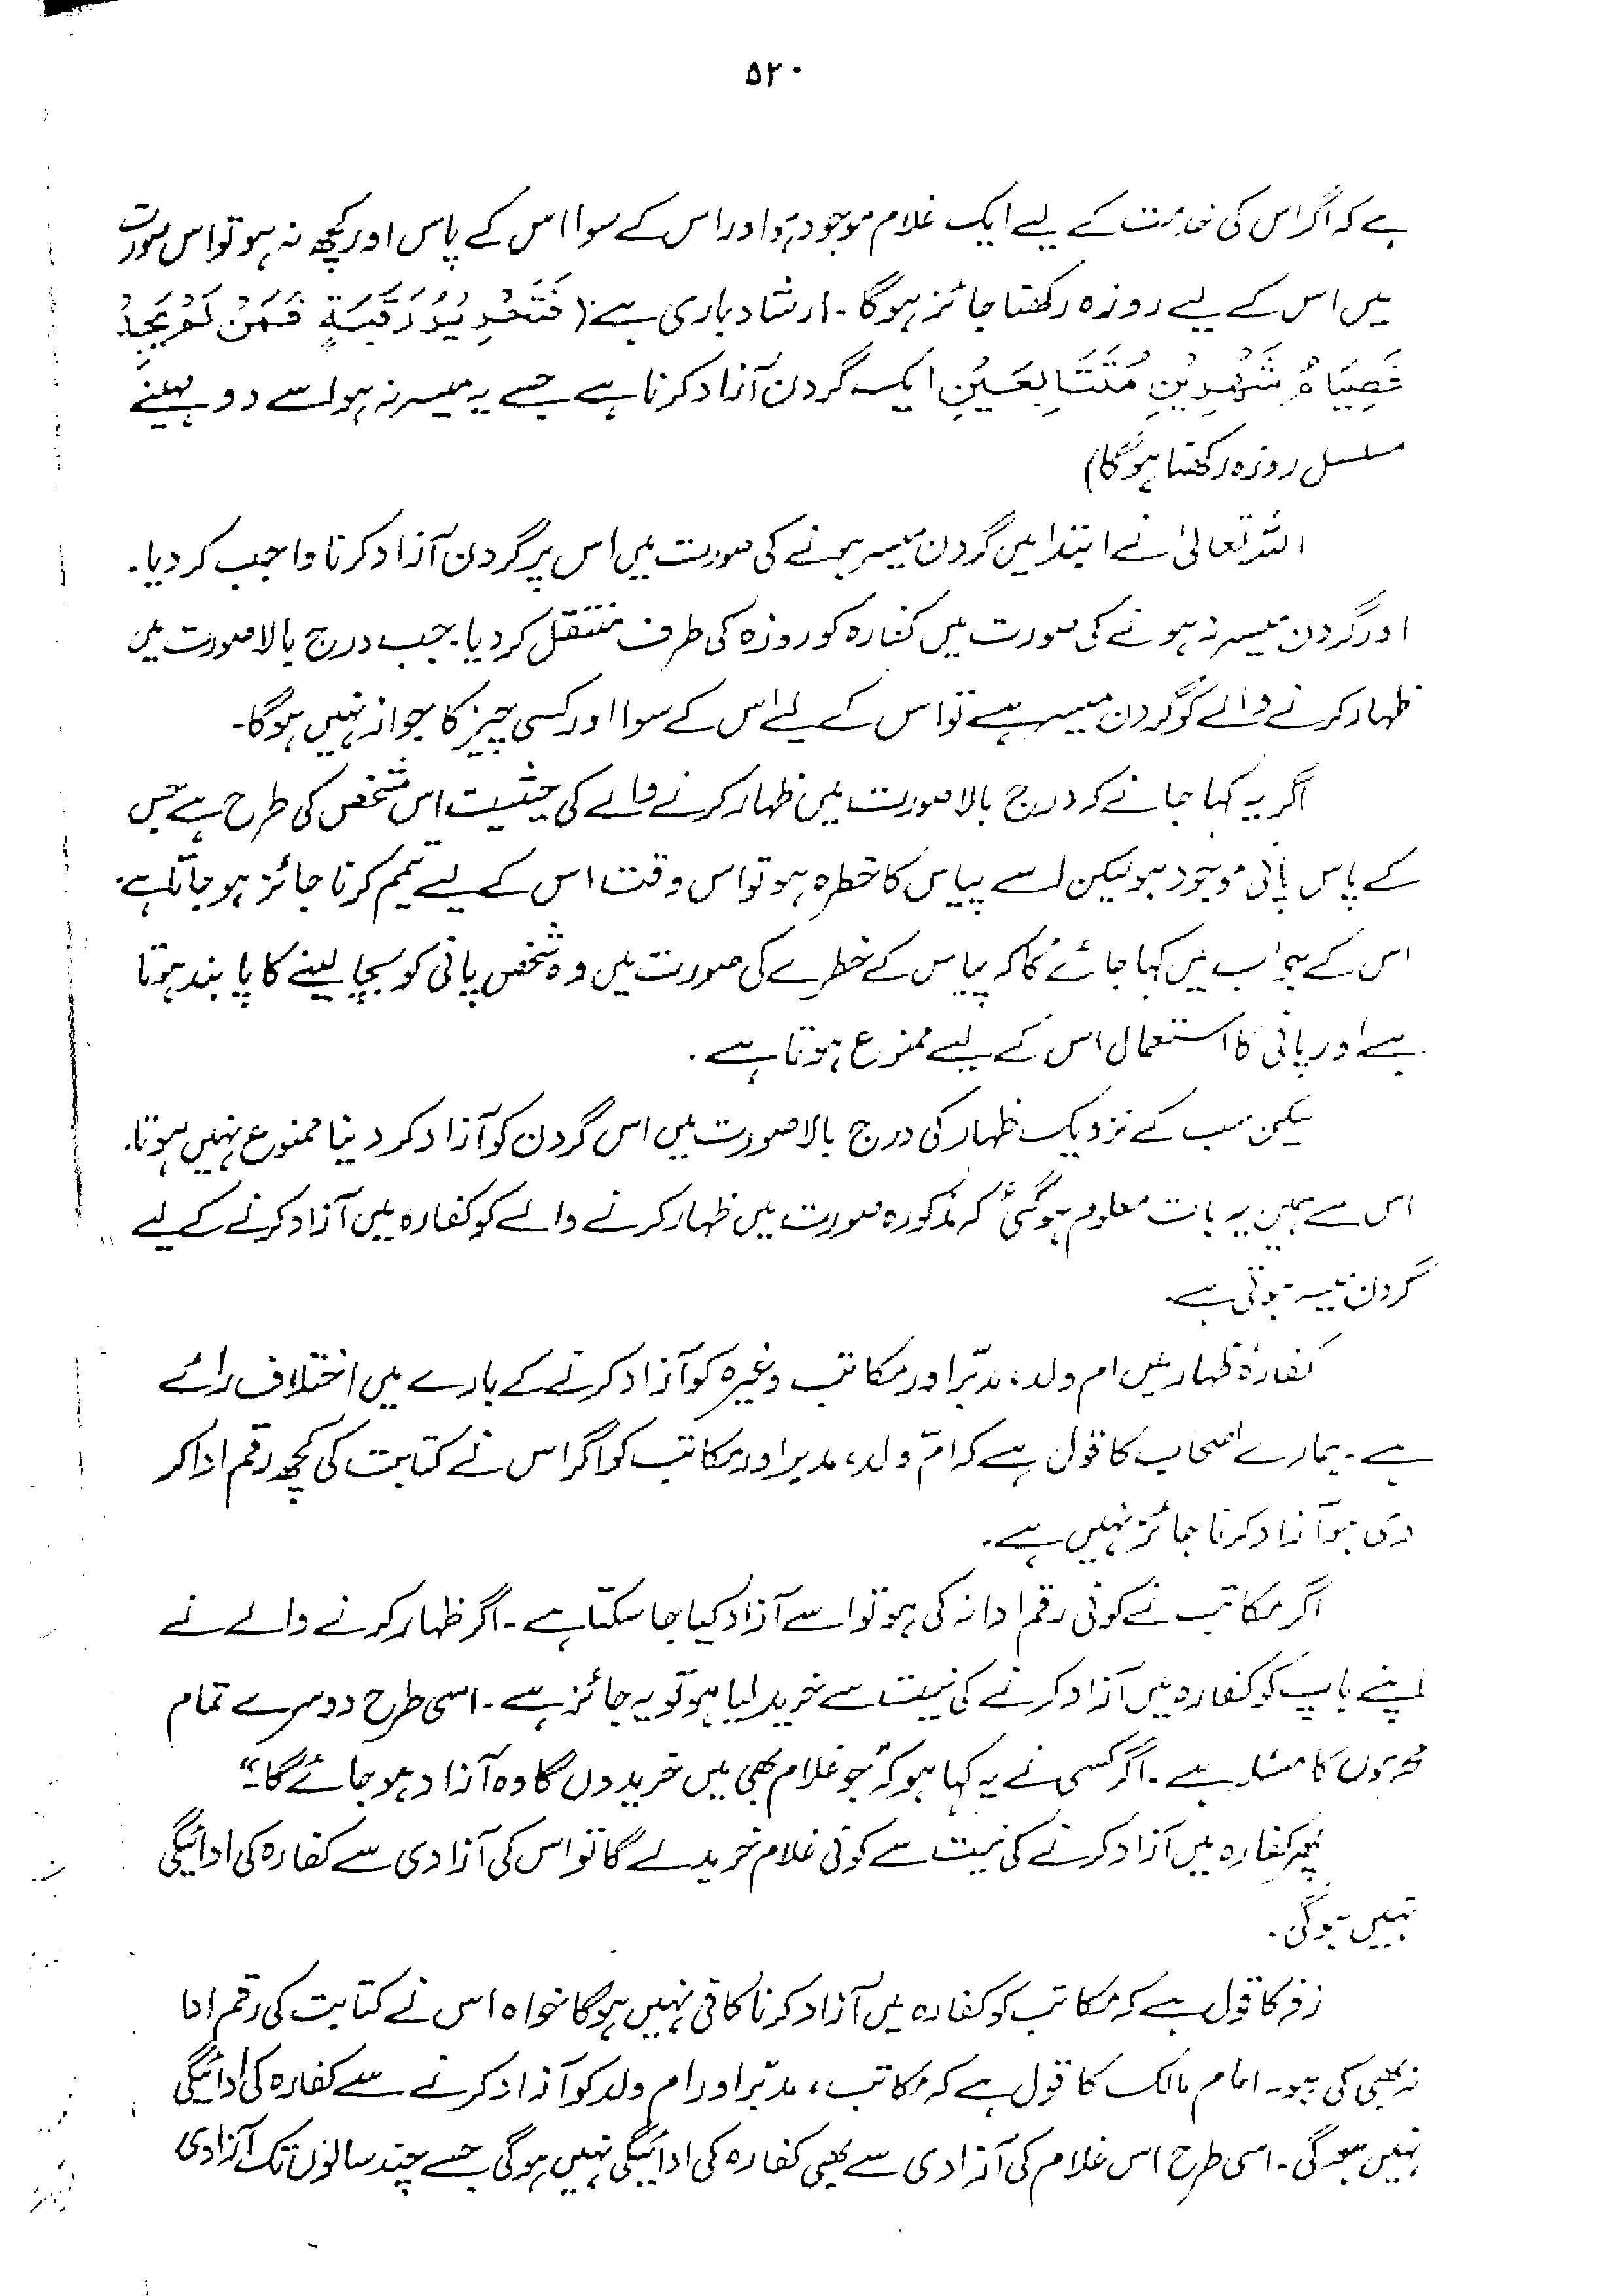 ۵۲۰
ہے کہ اگر اس کی خدمت کے لیے ایک غلام موجود ہو اور اس کے سوا اس کے پاس اور کچھ نہ ہو تو اس صورت
میں اس کے لیے روزہ رکھنا جائز ہوگا۔ ارشاد باری ہے (فَتَحْرِيْرُ رَقَبَةٍ فَمَنْ لَمْ يَجِدْ
فَصِيَامُ شَهْرَيْنِ مُتَتَابِعَيْنِ ایک گردن آزاد کرنا ہے جسے یہ میسر نہ ہو اسے دو مہینے
مسلسل روزہ رکھنا ہوگا)
اللہ تعالیٰ نے ابتدا میں گردن میسر ہونے کی صورت میں اس پر گردن آزاد کرنا واجب کر دیا۔
اور گردن میسر نہ ہونے کی صورت میں کفارہ کو روزہ کی طرف منتقل کر دیا۔ جب درج بالا صورت میں
ظہار کرنے والے کو گردن میسر ہے تو اس کے لیے اس کے سوا اور کسی چیز کا جواز نہیں ہوگا۔
اگر یہ کہا جائے کہ درج بالا صورت میں ظہار کرنے والے کی حیثیت اس شخص کی طرح ہے جس
کے پاس پانی موجود ہو لیکن اسے پیاس کا خطرہ ہو تو اس وقت اس کے لیے تیمم کرنا جائز ہو جاتا ہے۔
اس کے جواب میں کہا جائے گا کہ پیاس کے خطرے کی صورت میں وہ شخص پانی کو بچا لینے کا پابند ہوتا
ہے اور پانی کا استعمال اس کے لیے ممنوع ہوتا ہے۔
لیکن سب کے نزدیک ظہار کی درج بالا صورت میں اس گردن کو آزاد کر دینا ممنوع نہیں ہوتا۔
اس سے ہمیں یہ بات معلوم ہوگئی کہ مذکورہ صورت میں ظہار کرنے والے کو کفارہ میں آزاد کرنے کے لیے
گردن میسر ہوتی ہے۔
کفارۂ ظہار میں ام ولد، مدبّر اور مکاتب وغیرہ کو آزاد کرنے کے بارے میں اختلاف رائے
ہے۔ ہمارے اصحاب کا قول ہے کہ امّ ولد، مدبر اور مکاتب کو اگر اس نے کتابت کی کچھ رقم ادا کر
دی ہو آزاد کرنا جائز نہیں ہے۔
اگر مکاتب نے کوئی رقم ادا نہ کی ہو تو اسے آزاد کیا جا سکتا ہے۔ اگر ظہار کرنے والے نے
اپنے باپ کو کفارہ میں آزاد کرنے کی نیت سے خرید لیا ہو تو یہ جائز ہے۔ اسی طرح دوسرے تمام
محرموں کا مسئلہ ہے۔ اگر کسی نے یہ کہا ہو کہ "جو غلام بھی میں خریدوں گا وہ آزاد ہو جائے گا۔"
پھر کفارہ میں آزاد کرنے کی نیت سے کوئی غلام خرید لے گا تو اس کی آزادی سے کفارہ کی ادائیگی
نہیں ہوگی۔
زفر کا قول ہے کہ مکاتب کو کفارہ میں آزاد کرنا کافی نہیں ہوگا خواہ اس نے کتابت کی رقم ادا
نہ بھی کی ہو۔ امام مالک کا قول ہے کہ مکاتب، مدبّر اور ام ولد کو آزاد کرنے سے کفارہ کی ادائیگی
نہیں ہوگی۔ اسی طرح اس غلام کی آزادی سے بھی کفارہ کی ادائیگی نہیں ہوگی جسے چند سالوں تک آزادی